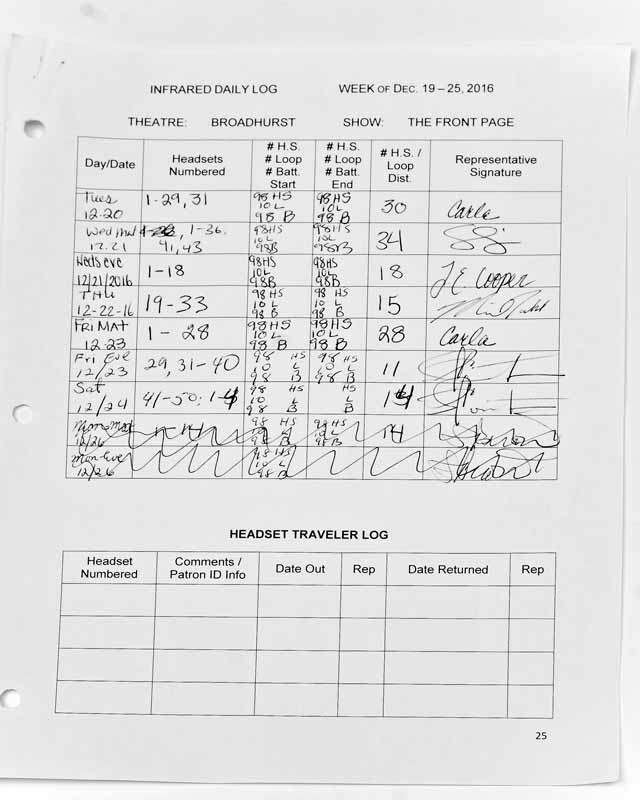 INFRARED DAILY LOG WEEK OF DEC. 19 – 25, 2016
THEATRE: BROADHURST SHOW: THE FRONT PAGE
Day/Date Headsets Numbered # H.S. # Loop # Batt. Start # H.S. # Loop # Batt. End # H.S. / Loop Dist. Representative Signature
Tues 12-20 1-29, 31 98 HS 10 L 98 B 98 HS 10 L 98 B 30 Carla
Wed mat 12.21 1-36. 41, 43 98HS 10 L 98B 98HS 10L 98B 34
Weds eve 12/21/2016 1-18 98HS 10L 98B 98HS 10L 98B 18 J.E. Cooper
THU 12-22-16 19-33 98 HS 10 L 98 B 98 HS 10 L 98 B 15
FRI MAT 12-23 1 - 28 98HS 10 L 98 B 98HS 10 L 98 B 28 Carla
Fri Eve 12/23 29, 31-40 98 HS 10 L 98 B 98 HS 10 L 98 B 11
Sat 12/24 41-50; 1-4 98 HS 10 L 98 B HS L B 14
Mon Mat 12/26 1-14 98 HS 10 L 98 B 98 HS 10 L 98 B 14
Mon Eve 12/26 98 HS 10 L 98 B
HEADSET TRAVELER LOG
Headset Numbered Comments / Patron ID Info Date Out Rep Date Returned Rep
25